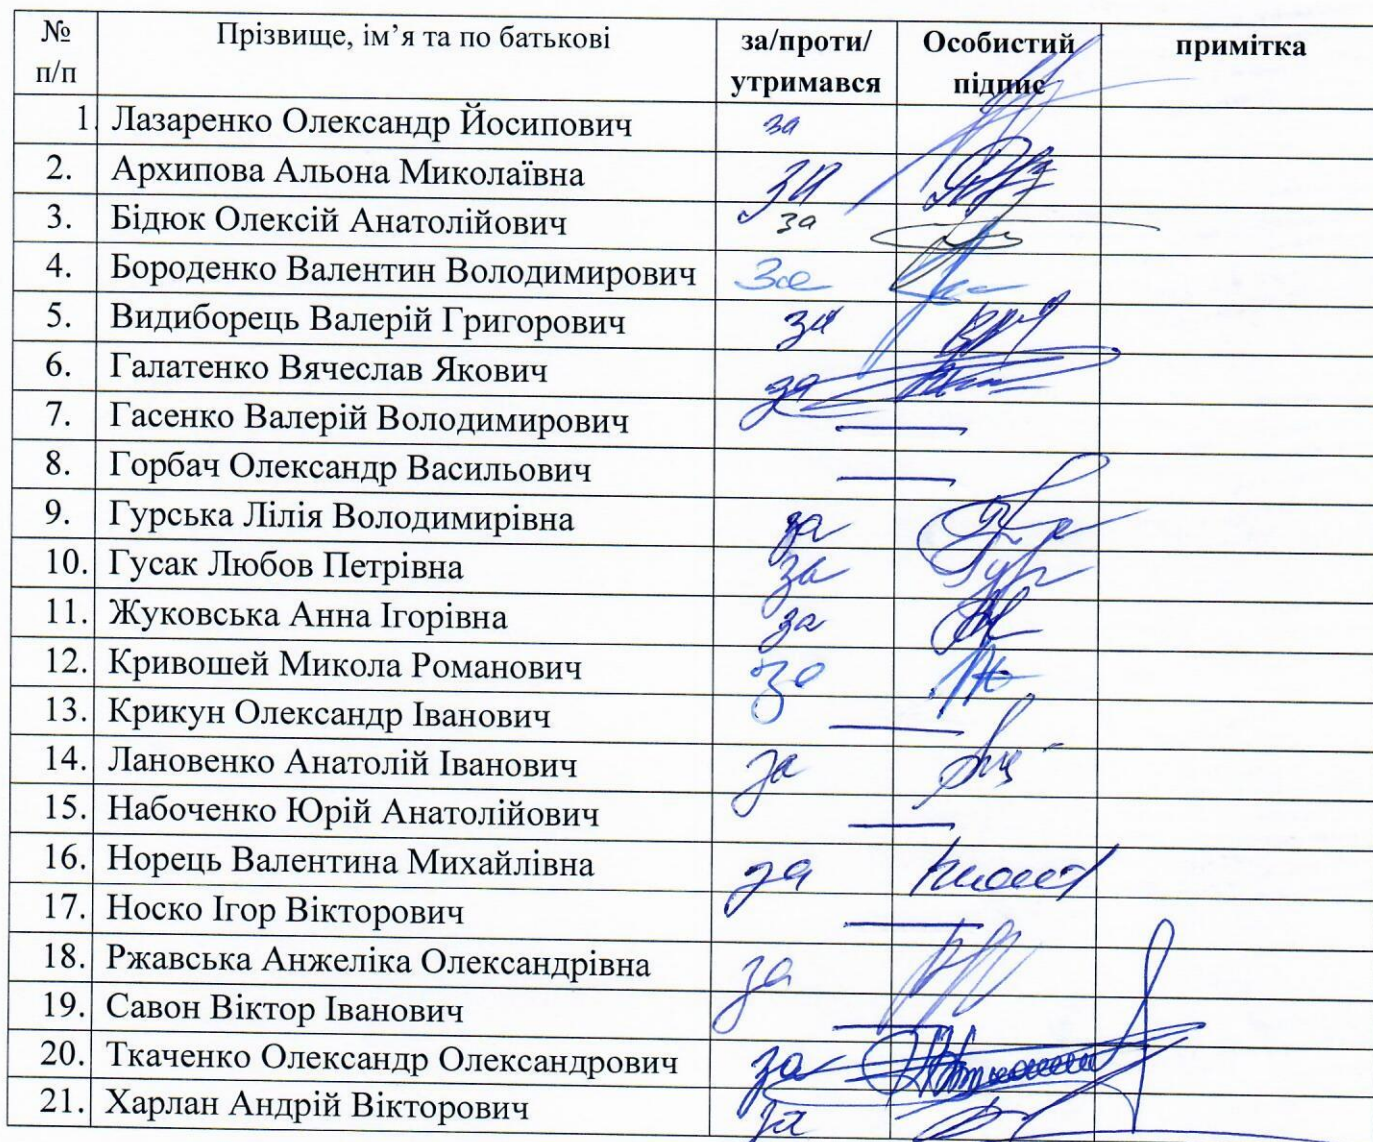 № п/п Прізвище, ім’я та по батькові за/проти/утримався Особистий підпис примітка
1. Лазаренко Олександр Йосипович за
2. Архипова Альона Миколаївна за
3. Бідюк Олексій Анатолійович за
4. Бороденко Валентин Володимирович за
5. Видиборець Валерій Григорович за
6. Галатенко Вячеслав Якович за
7. Гасенко Валерій Володимирович —
8. Горбач Олександр Васильович —
9. Гурська Лілія Володимирівна за
10. Гусак Любов Петрівна за
11. Жуковська Анна Ігорівна за
12. Кривошей Микола Романович за
13. Крикун Олександр Іванович —
14. Лановенко Анатолій Іванович за
15. Набоченко Юрій Анатолійович —
16. Норець Валентина Михайлівна за
17. Носко Ігор Вікторович —
18. Ржавська Анжеліка Олександрівна за
19. Савон Віктор Іванович —
20. Ткаченко Олександр Олександрович за
21. Харлан Андрій Вікторович за